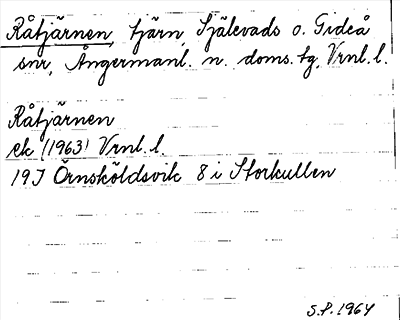 Råtjärnen, tjärn, Själevads o. Gideå
snr, Ångermanl. n. doms. tg, Vrnl. l.
Råtjärnen
ek (1963) Vrnl. l.
19J Örnsköldsvik 8 i Storkullen
S.P. 1964